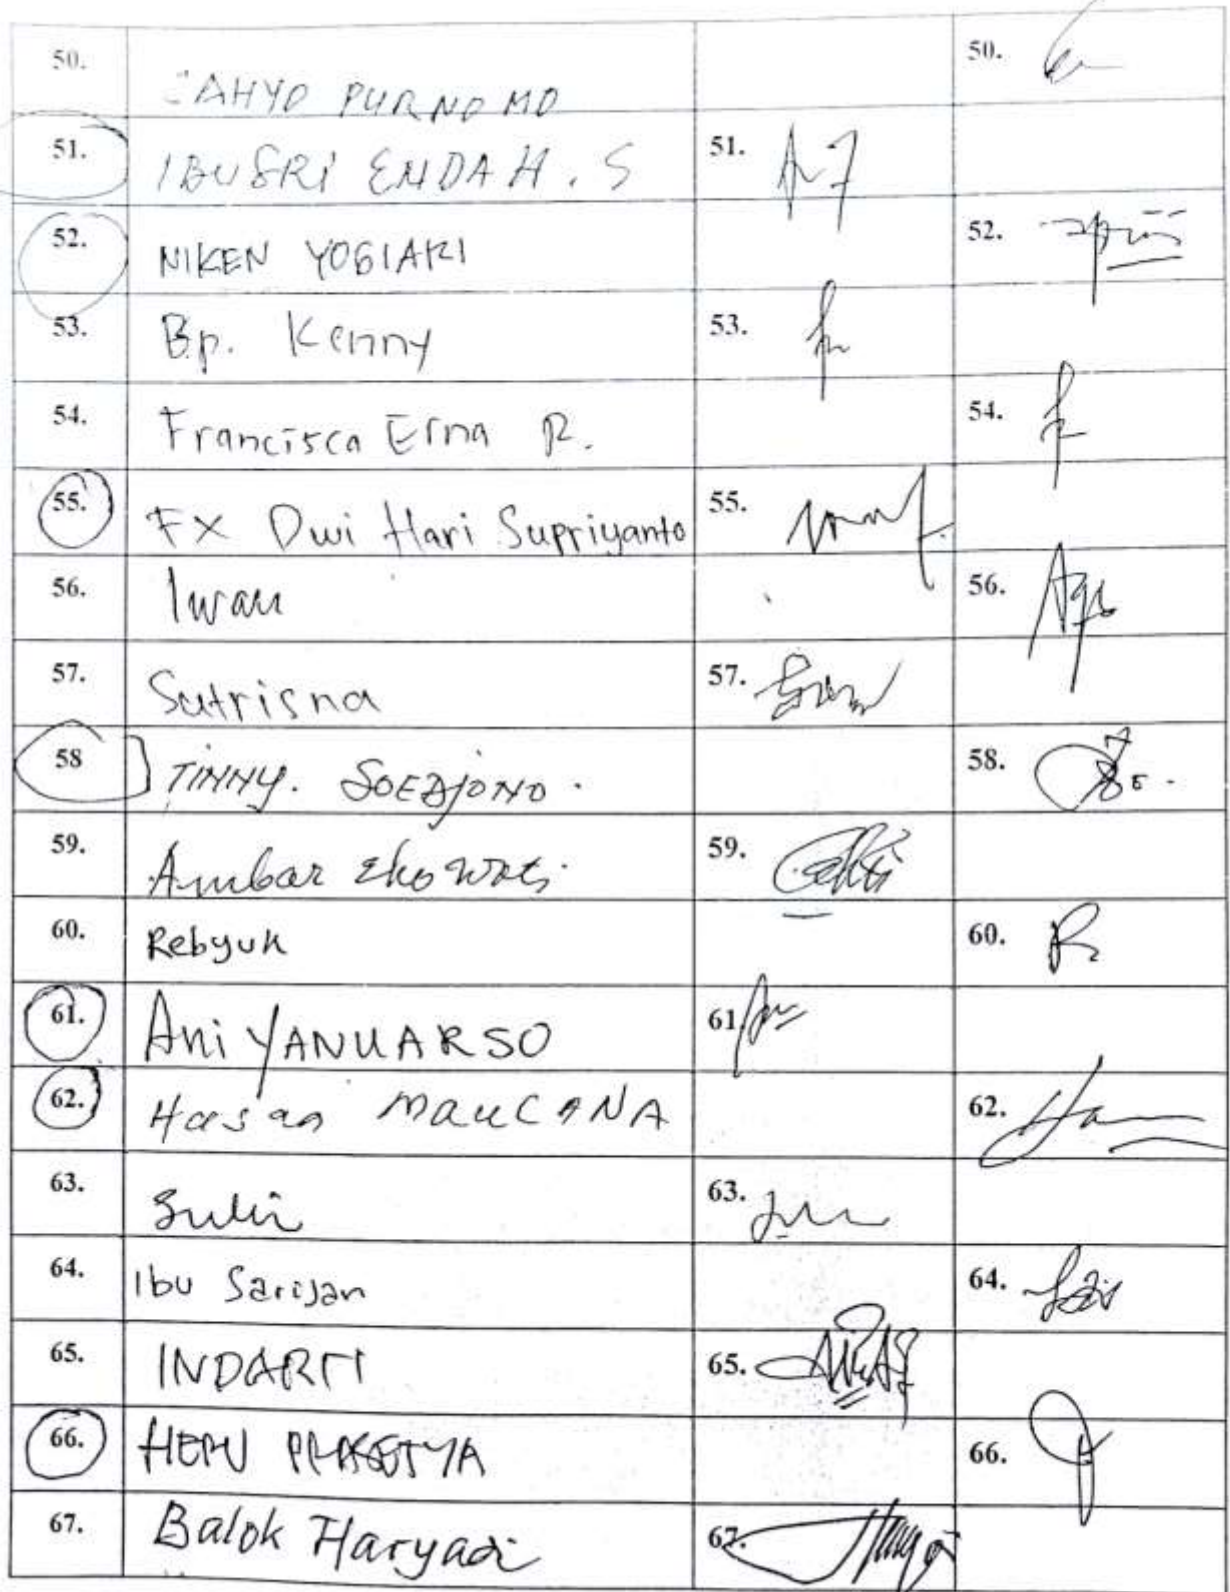 50. CAHYO PURNOMO 50.
51. IBU SRI ENDAH . S 51.
52. NIKEN YOGIARI 52.
53. Bp. Kenny 53.
54. Francisca Erna R. 54.
55. FX Dwi Hari Supriyanto 55.
56. Iwan 56.
57. Sutrisna 57.
58 TINNY. SOEDJONO. 58.
59. Ambar Ekowati 59.
60. Rebyuk 60.
61. Ani YANUARSO 61.
62. Hasan MAULANA 62.
63. 63.
64. Ibu Sarijan 64.
65. INDARTI 65.
66. HERU PRASETYA 66.
67. Balok Haryadi 67.